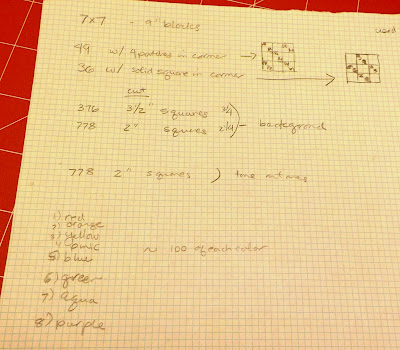 7x7 - 9" blocks
used
49 w/ 4 patches in corner →
36 w/ solid square in corner
cut
376 3 1/2" squares 3/4
778 2" squares 2 1/4 - background
778 2" squares
1) red
2) orange
3) yellow
4) pink
5) blue
~ 100 of each color
6) green
7) aqua
8) purple